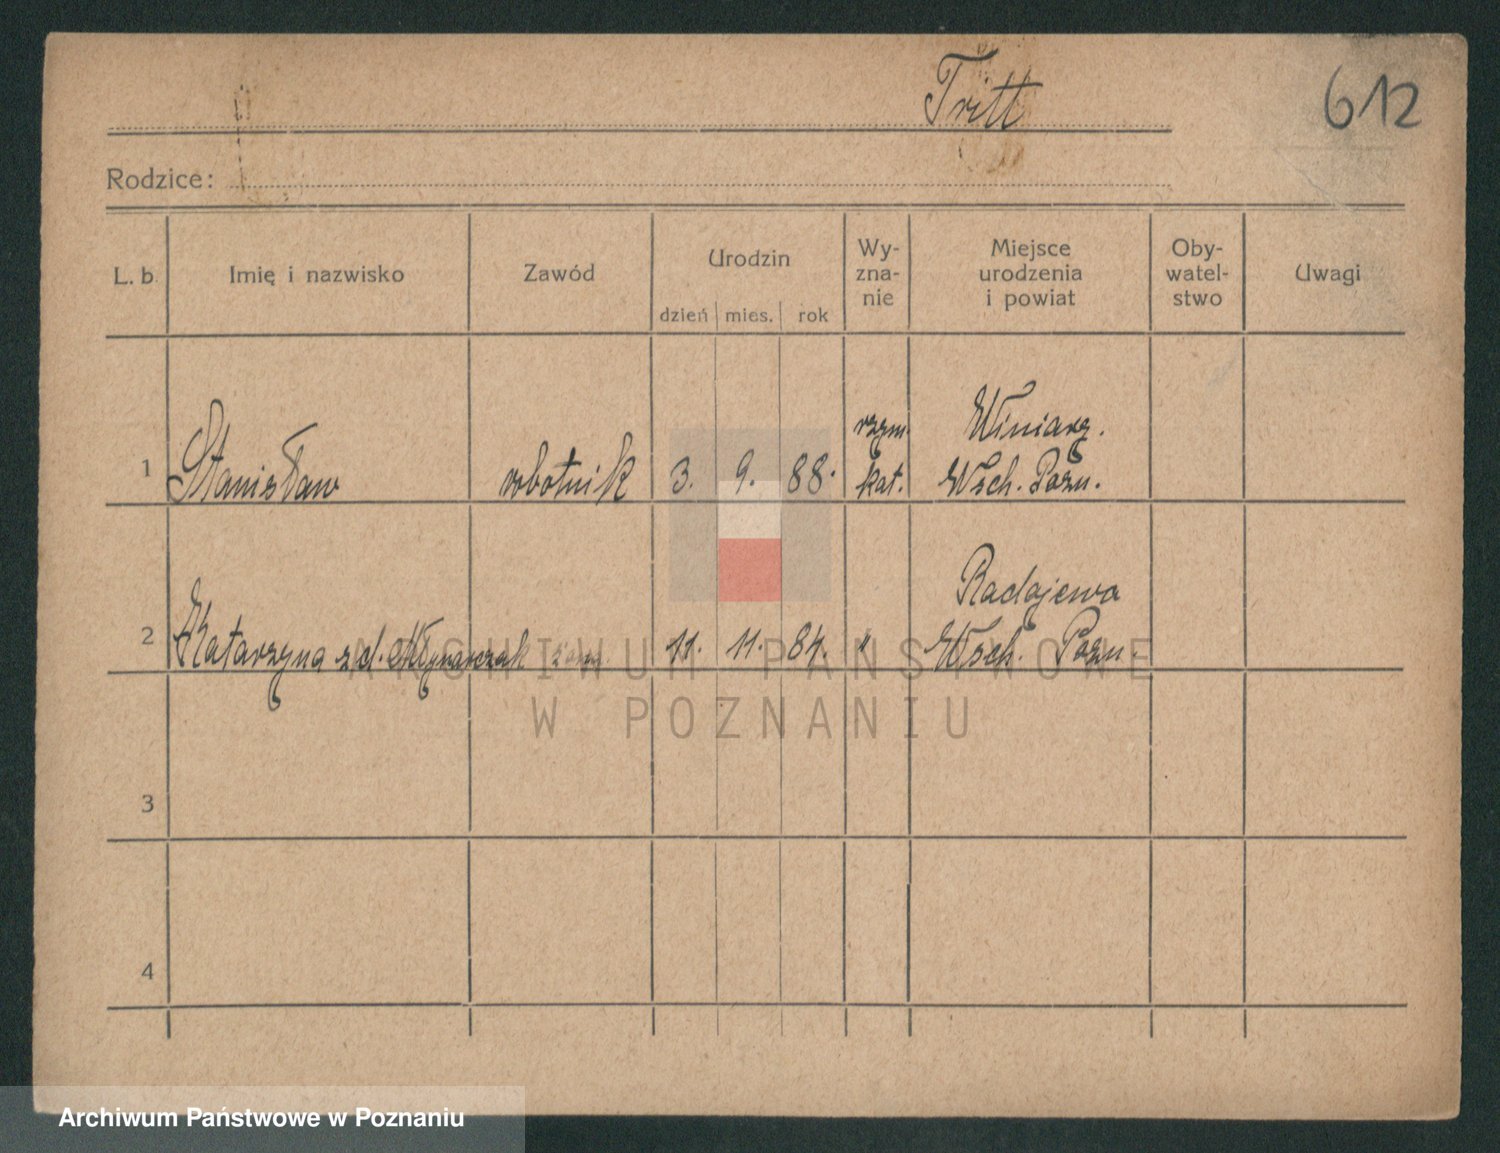 Tritt
612
Rodzice:
L. b. Imię i nazwisko Zawód Urodzin dzień mies. rok Wy-zna-nie Miejsce urodzenia i powiat Oby-watel-stwo Uwagi
rzym. Winiary.
1 Stanisław robotnik 3. 9. 88. kat. Wsch. Pozn.
Radojewo
2 Katarzyna z d. Młynarczak 11. 11. 84. " Wsch. Pozn.
3
4
ARCHIWUM PAŃSTWOWE
W POZNANIU
Archiwum Państwowe w Poznaniu